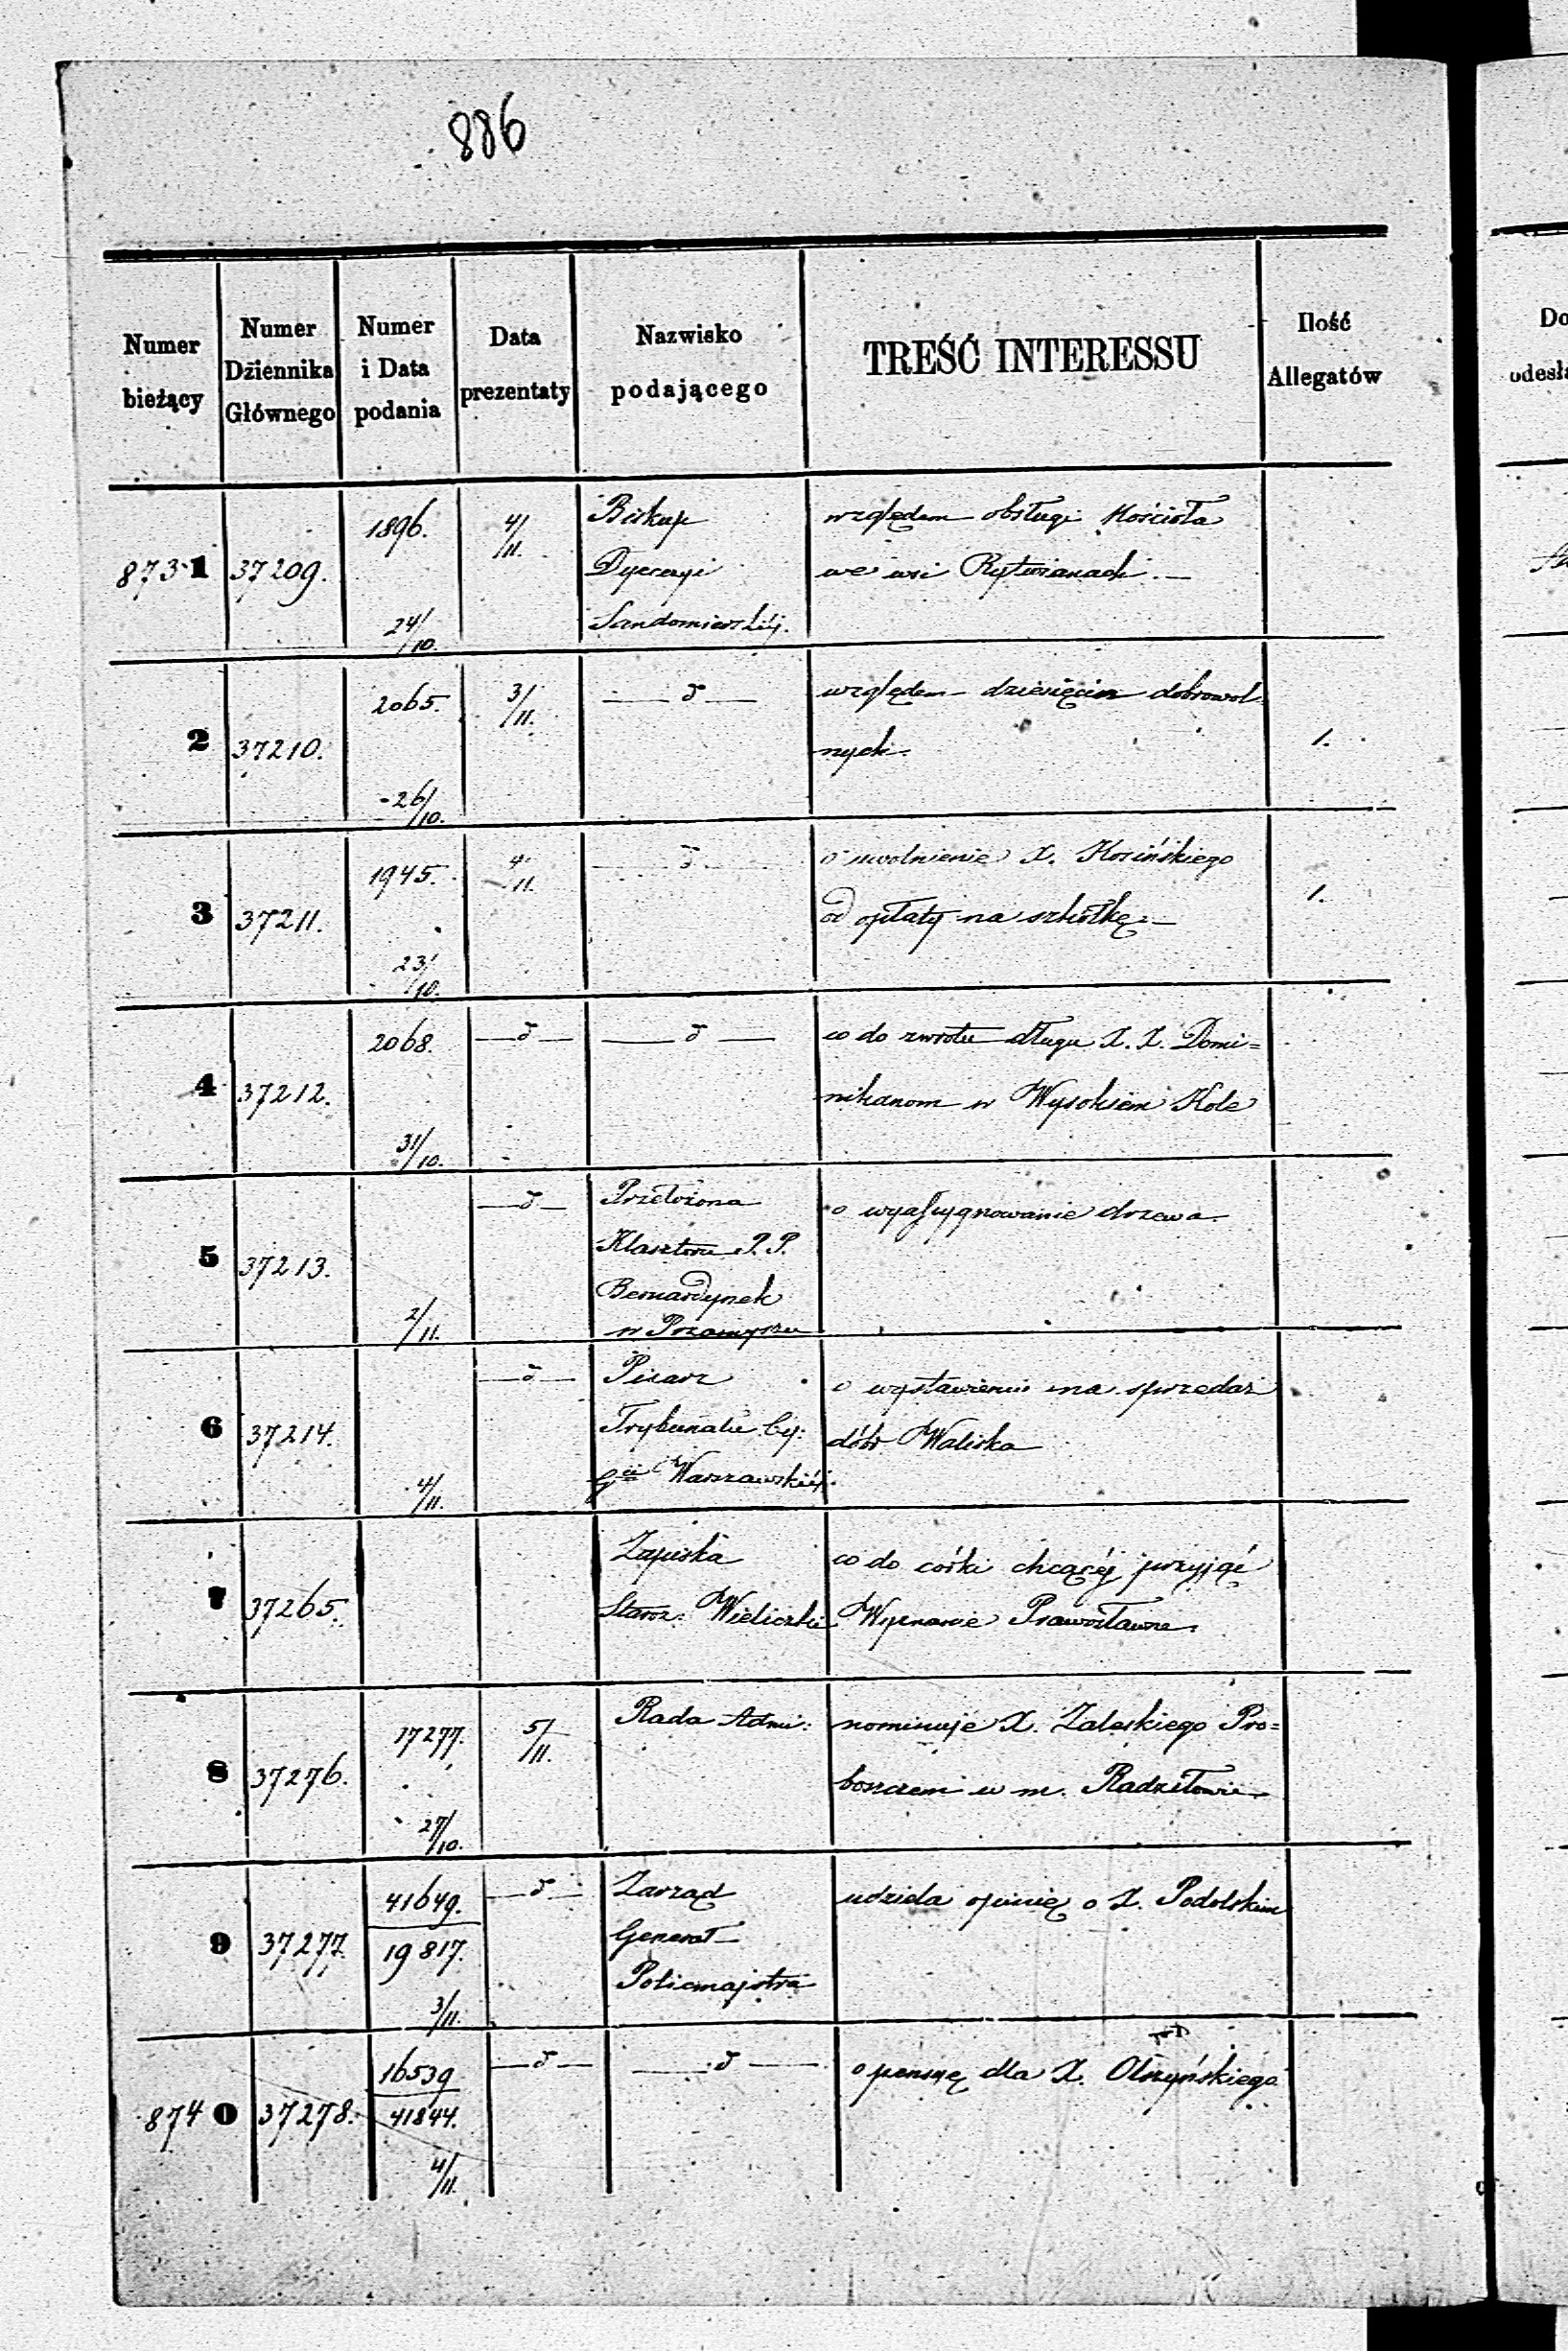 886
Numer bieżący
Numer Dziennika Głównego
Numer i Data podania
Data prezentaty
Nazwisko podającego
TREŚĆ INTERESSU
Ilość Allegatów
873 1
37209.
1896.
24/10.
4/11.
Biskup
Dyecezyi
Sandomierskiéj.
względem obsługi Kościoła
we wsi Rytwianach. —
2
37210.
2065.
26/10.
3/11.
— d —
względem dziesięcin dobrowol-
nych.
1.
3
37211.
1945.
23/10.
4/11.
— d —
o uwolnienie X. Kosińskiego
od opłaty na szkółkę. —
1.
4
37212.
2068.
31/10.
— d —
— d —
co do zwrotu długu X. X. Domi=
nikanom w Wysokiem Kole
5
37213.
2/11.
— d —
Przełożona
Klasztoru P. P.
Bernardynek
w
o wyassygnowanie drzewa.
6
37214.
4/11.
— d —
Pisarz
Trybunału Cy:
Gii Warszawskiéj.
o wystawieniu na sprzedaż
dóbr Waliska
7
37265.
Zapiska
Staroz: Wieliczki
co do córki chcącéj przyjąć
Wyznanie Prawosławne.
8
37276.
17277.
27/10.
5/11.
Rada Admi:
nominuje X. Zaleskiego Pro=
boszczem w m. Radziłowie.
9
37277.
41649.
19817.
3/11.
— d —
Zarząd
Generał
Policmajstra
udziela opinię o X. Podolskim
874 0
37278.
16539
41844.
4/11.
— d —
— d —
o pensyę dla X. Olszyńskiego
Do
odesła